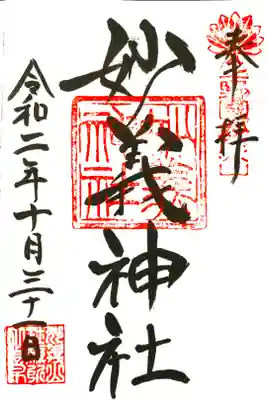 奉拝
妙義神社
令和二年十月三十一日